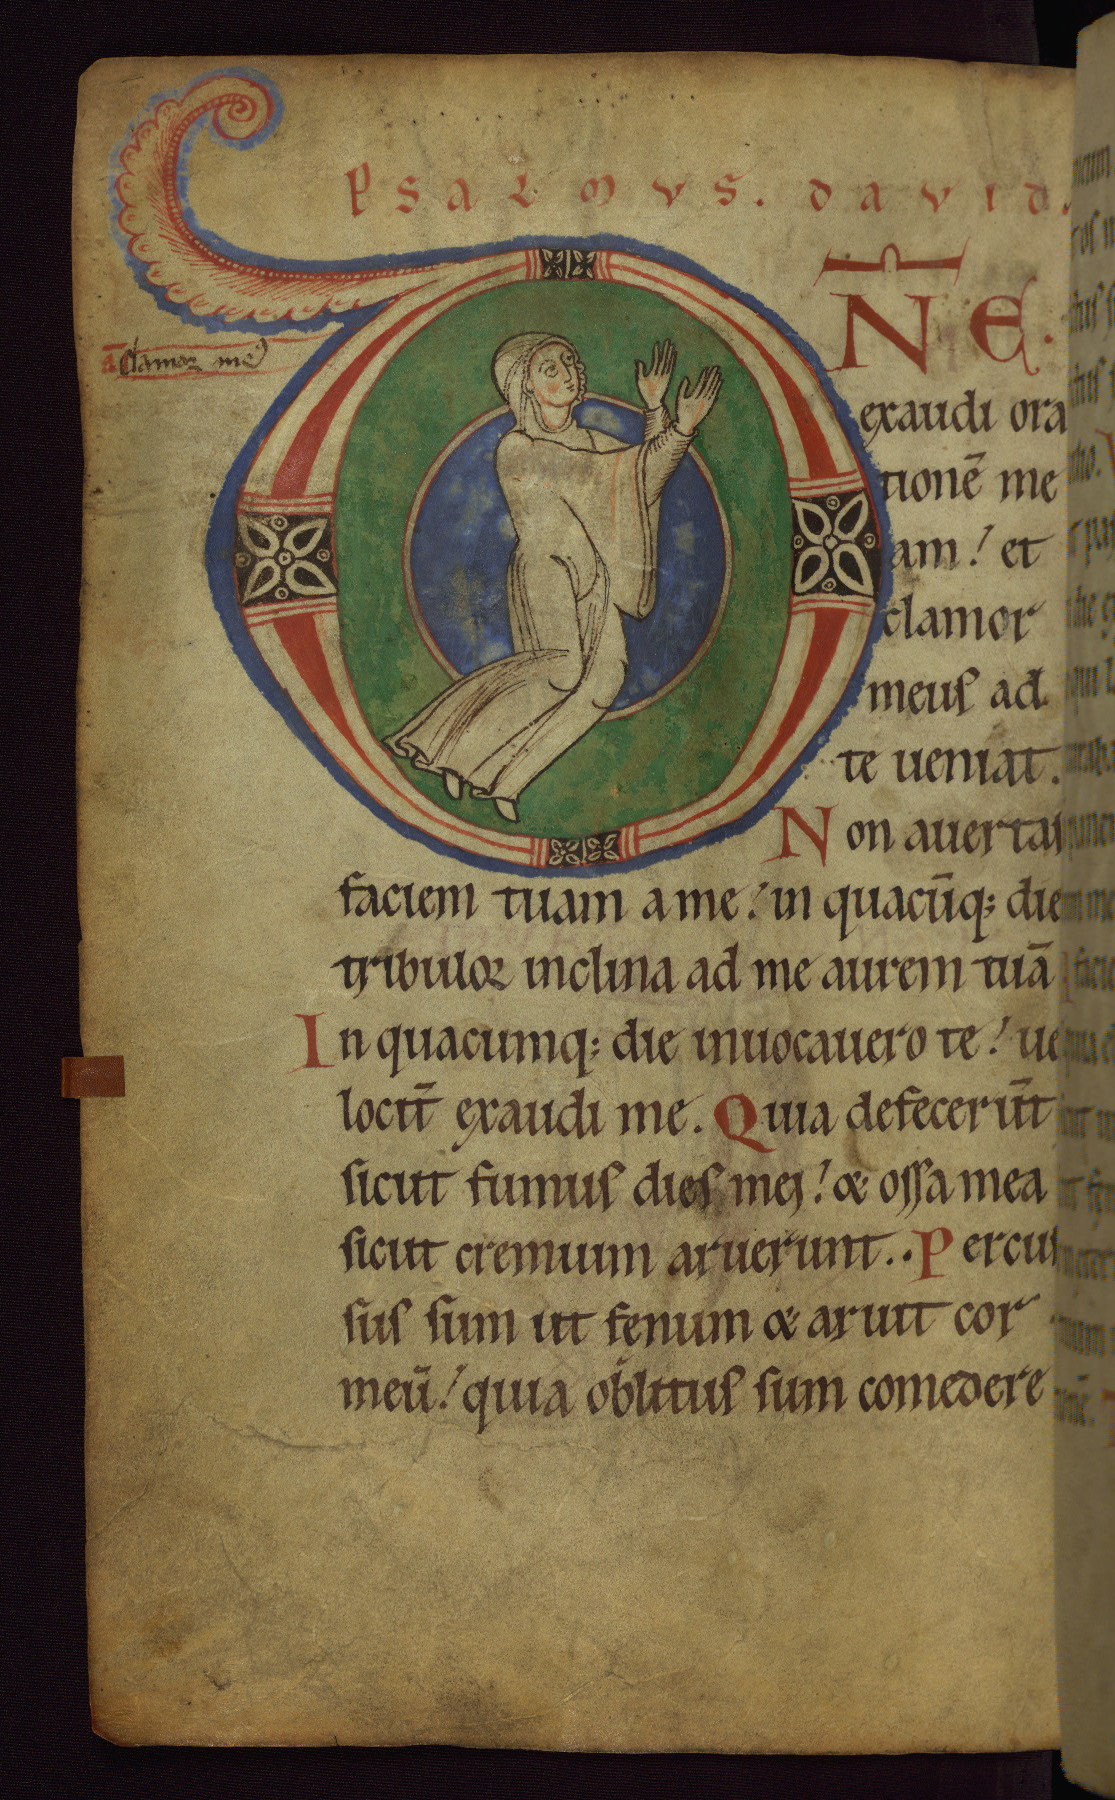 Psalmus. david.
DNE.
exaudi ora
tionē me
am! et
clamor
meus ad
te ueniat.
a Clamor me
Non auertas
faciem tuam a me! in quacūq; die
tribulor inclina ad me aurem tuā
In quacumq; die inuocauero te! ue
locit̄ exaudi me. Quia defecerūt
sicut fumus dies mei! & ossa mea
sicut cremium aruerunt.. Percus
sus sum ut fenum & aruit cor
meū! quia oblitus sum comedere